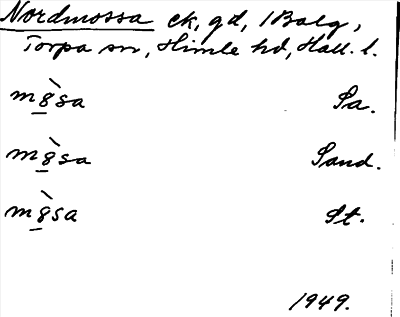 Nordmossa ck, gd, 1 Balg,
Torpa sn, Himle hd, Hall. l.
mò̱sa Sa.
mò̱sa Sand.
mò̱sa St.
1949.